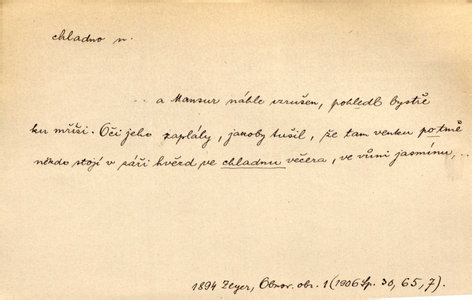 chladno n.
... a Mansur náhle vzrušen, pohlédl bystře
ku mříži. Oči jeho zaplály, jakoby tušil, že tam venku potmě
někdo stojí v záři hvězd ve chladnu večera, ve vůni jasmínu, ...
1894 Zeyer, Obnov. obr. 1 (1906 Sp. 30, 65, 7).